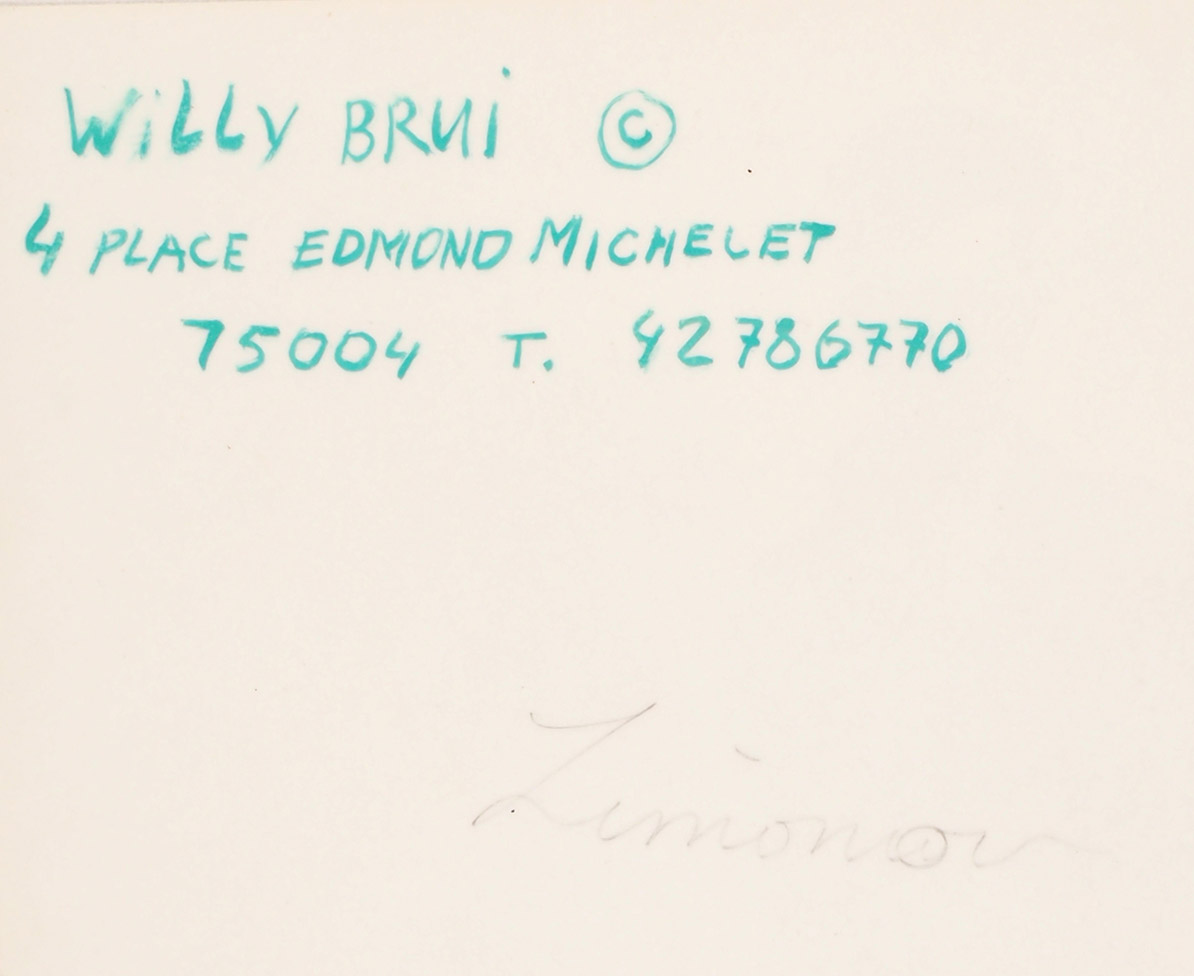 WiLLy BRUi ©
4 PLACE EDMOND MICHELET
75004 T. 42786770
Limonov